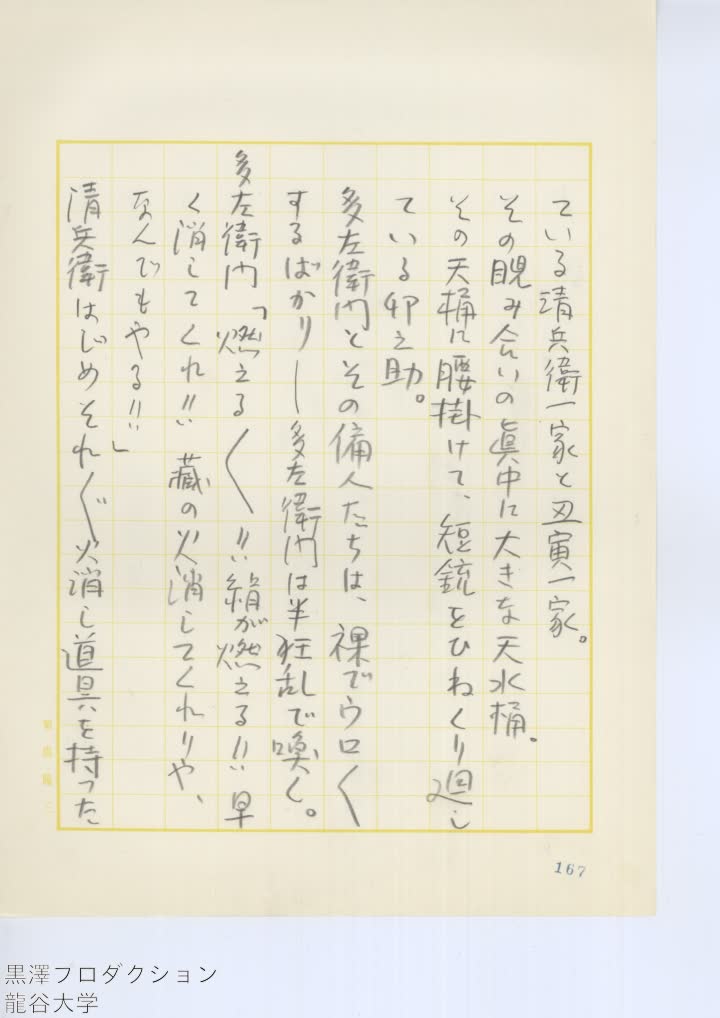 ている清兵衛一家と丑寅一家。
その睨み合いの眞中に大きな天水桶。
その天桶に腰掛けて、短銃をひねくり廻し
ている卯之助。
多左衛門とその傭人たちは、裸でウロ〱
するばかり――多左衛門は半狂乱で喚く。
多左衛門「燃える〱!! 絹が燃える!! 早
く消してくれ!! 蔵の火消してくれりや、
なんでもやる!!」
清兵衛はじめそれ〲火消し道具を持った
167
黒澤プロダクション
龍谷大学